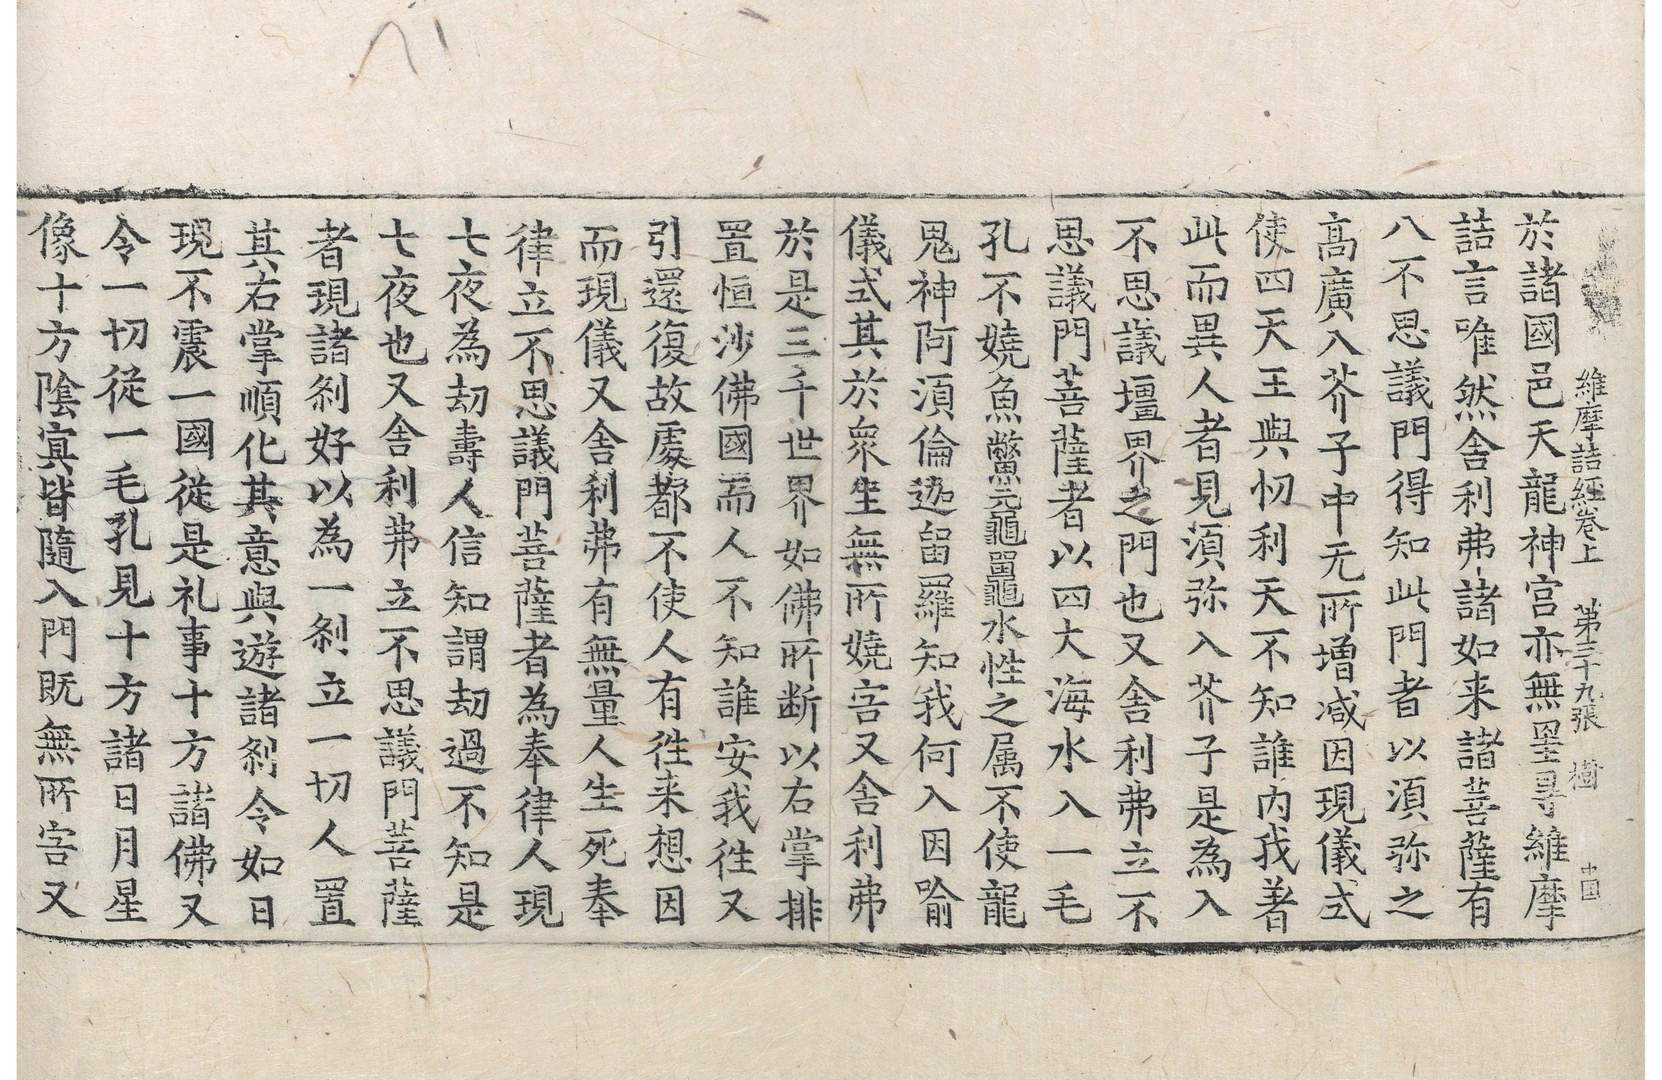 維摩詰經卷上 第三十九張 樹 中国
於諸國邑天龍神宫亦無罣㝵維摩
詰言唯然舍利弗諸如来諸菩薩有
八不思議門得知此門者以湏弥之
髙廣入芥子中无所增减因現儀式
使四天王與忉利天不知誰内我著
此而異人者見湏弥入芥子是為入
不思議壃界之門也又舍利弗立不
思議門菩薩者以四大海水入一毛
孔不嬈魚鱉黿鼉水性之属不使龍
鬼神阿湏倫迦留羅知我何入因喻
儀式其於衆生無所嬈害又舍利弗
於是三千世界如佛所断以右掌排
置恒沙佛國而人不知誰安我徃又
引還復故處都不使人有徃来想因
而現儀又舍利弗有無量人生死奉
律立不思議門菩薩者為奉律人現
七夜為劫壽人信知謂劫過不知是
七夜也又舍利弗立不思議門菩薩
者現諸刹好以為一刹立一切人置
其右掌順化其意與遊諸刹令如日
現不震一國従是礼事十方諸佛又
令一切従一毛孔見十方諸日月星
像十方陰冥皆隨入門既無所害又